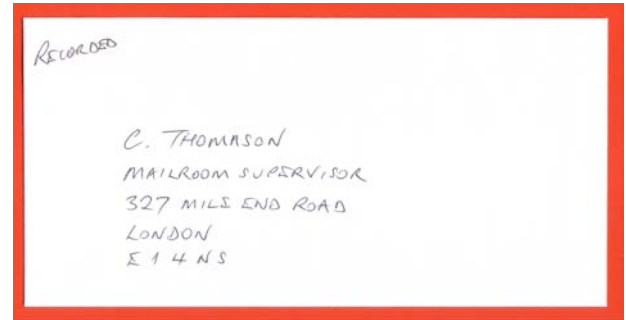 RECORDED
C. THOMASON
MAILROOM SUPERVISOR
327 MILE END ROAD
LONDON
E1 4NS